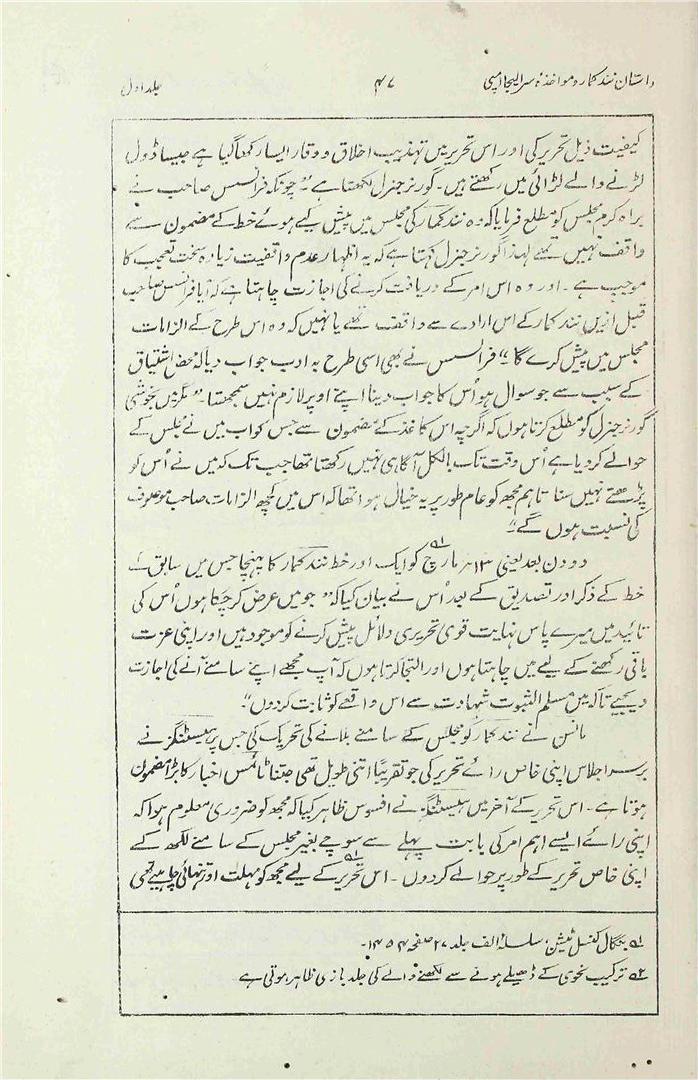 داستان نند کمار و مواخذۂ سر الیجا امپی
۴۷
جلد اول
کیفیت ذیل تحریر کی اور اس تحریر میں تہذیب اخلاق و وقار ایسا رکھا گیا ہے جیسا ڈول
لڑنے والے لڑائی میں رکھتے ہیں۔ گورنر جنرل لکھتا ہے "چونکہ فرانسس صاحب نے
براہ کرم مجلس کو مطلع فرمایا کہ وہ نند کمار کی مجلس میں پیش کیے ہوئے خط کے مضمون سے
واقف نہیں تھے لہذا گورنر جنرل کہتا ہے کہ یہ اظہار عدم واقفیت زیادہ سخت تعجب کا
موجب ہے۔ اور وہ اس امر کے دریافت کرنے کی اجازت چاہتا ہے کہ آیا فرانسس صاحب
قبل ازیں نند کمار کے اس ارادے سے واقف تھے یا نہیں کہ وہ اس طرح کے الزامات
مجلس میں پیش کرے گا" فرانسس نے بھی اسی طرح بہ ادب جواب دیا کہ محض اشتیاق
کے سبب سے جو سوال ہو اُس کا جواب دینا اپنے اوپر لازم نہیں سمجھتا۔ "مگر میں بخوشی
گورنر جنرل کو مطلع کرتا ہوں کہ اگرچہ اس کاغذ کے مضمون سے جس کو اب میں نے مجلس کے
حوالے کر دیا ہے اُس وقت تک بالکل آگاہی نہیں رکھتا تھا جب تک کہ میں نے اُس کو
پڑھتے نہیں سنا تاہم مجھ کو عام طور پر یہ خیال ہوا تھا کہ اس میں کچھ الزامات صاحب موصوف
کی نسبت ہوں گے"
دو دن بعد یعنی ۱۳؍ مارچ ؎۱ کو ایک اور خط نند کمار کا پہنچا جس میں سابق کے
خط کے ذکر اور تصدیق کے بعد اُس نے بیان کیا کہ "جو میں عرض کر چکا ہوں اُس کی
تائید میں میرے پاس نہایت قوی تحریری دلائل پیش کرنے کو موجود ہیں اور اپنی عزت
باقی رکھنے کے لیے میں چاہتا ہوں اور التجا کرتا ہوں کہ آپ مجھے اپنے سامنے آنے کی اجازت
دیجیے تاکہ میں مسلم الثبوت شہادت سے اس واقعے کو ثابت کر دوں"۔
مانسن نے نند کمار کو مجلس کے سامنے بلانے کی تحریک کی جس پر ہیسٹنگز نے
بر سر اجلاس اپنی خاص رائے تحریر کی جو تقریباً اتنی طویل تھی جتنا ٹائمس اخبار کا بڑا مضمون
ہوتا ہے۔ اس تحریر کے آخر میں ہیسٹنگز نے افسوس ظاہر کیا کہ مجھ کو ضروری معلوم ہوا کہ
اپنی رائے ایسے اہم امر کی بابت پہلے سے سوچے بغیر مجلس کے سامنے لکھ کے
اپنی خاص تحریر کے طور پر حوالے کر دوں۔ اس تحریر ؎۲ کے لیے مجھ کو مہلت اور تنہائی چاہیے تھی
؎۱ بنگال کنسل ٹیشن، سلسلۂ الف جلد ۲۷ صفحہ ۱۴۵۴۔
؎۲ ترکیب نحوی کے ڈھیلے ہونے سے لکھنے والے کی جلد بازی ظاہر ہوتی ہے